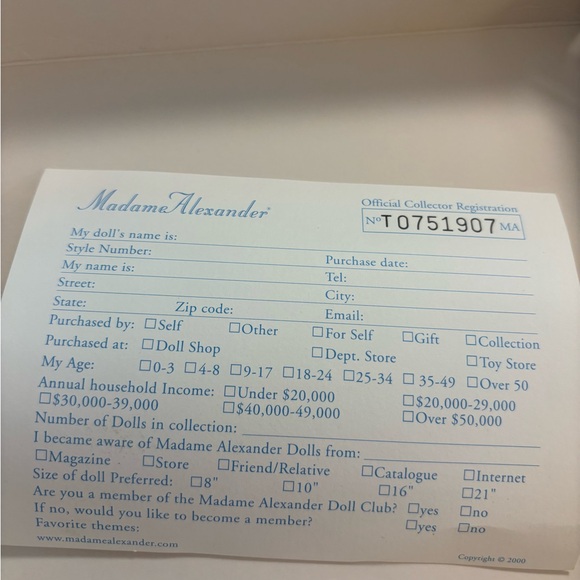 Madame Alexander®
Official Collector Registration
Nº T0751907 MA
My doll's name is:
Style Number: Purchase date:
My name is: Tel:
Street: City:
State: Zip code: Email:
Purchased by: ☐Self ☐Other ☐For Self ☐Gift ☐Collection
Purchased at: ☐Doll Shop ☐Dept. Store ☐Toy Store
My Age: ☐0-3 ☐4-8 ☐9-17 ☐18-24 ☐25-34 ☐35-49 ☐Over 50
Annual household Income: ☐Under $20,000 ☐$20,000-29,000
☐$30,000-39,000 ☐$40,000-49,000 ☐Over $50,000
Number of Dolls in collection:
I became aware of Madame Alexander Dolls from:
☐Magazine ☐Store ☐Friend/Relative ☐Catalogue ☐Internet
Size of doll Preferred: ☐8" ☐10" ☐16" ☐21"
Are you a member of the Madame Alexander Doll Club? ☐yes ☐no
If no, would you like to become a member? ☐yes ☐no
Favorite themes:
www.madamealexander.com
Copyright © 2000